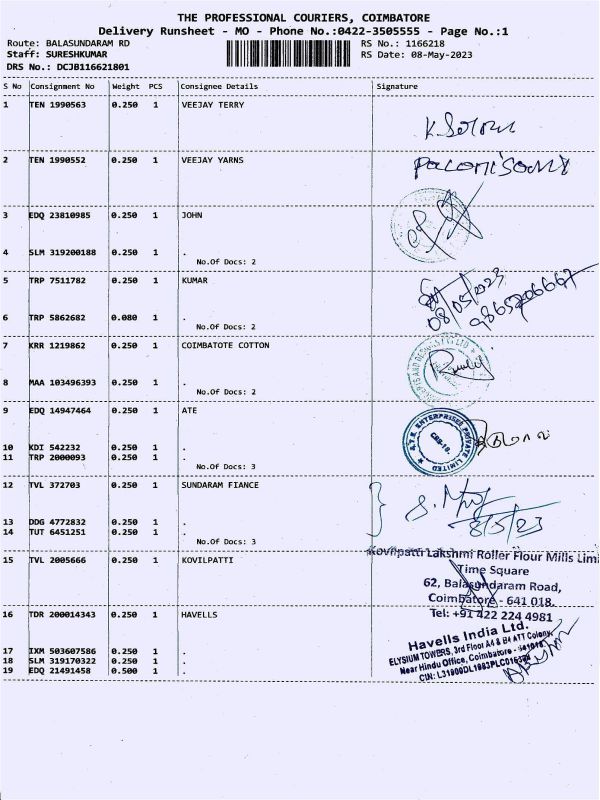 THE PROFESSIONAL COURIERS, COIMBATORE
Delivery Runsheet - MO - Phone No.:0422-3505555 - Page No.:1
Route: BALASUNDARAM RD RS No.: 1166218
Staff: SURESHKUMAR RS Date: 08-May-2023
DRS No.: DCJB116621801
S No Consignment No Weight PCS Consignee Details Signature
1 TEN 1990563 0.250 1 VEEJAY TERRY
2 TEN 1990552 0.250 1 VEEJAY YARNS
3 EDQ 23810985 0.250 1 JOHN
4 SLM 319200188 0.250 1 .
No.Of Docs: 2
5 TRP 7511782 0.250 1 KUMAR
08/05/2023
6 TRP 5862682 0.080 1 .
No.Of Docs: 2
7 KRR 1219862 0.250 1 COIMBATOTE COTTON
8 MAA 103496393 0.250 1 .
No.Of Docs: 2
9 EDQ 14947464 0.250 1 ATE
A.T.E. ENTERPRISES PRIVATE LIMITED
CBE-18.
10 KDI 542232 0.250 1 .
11 TRP 2000093 0.250 1 .
No.Of Docs: 3
12 TVL 372703 0.250 1 SUNDARAM FIANCE
8/5/23
13 DDG 4772832 0.250 1 .
14 TUT 6451251 0.250 1 .
No.Of Docs: 3
15 TVL 2005666 0.250 1 KOVILPATTI
Kovilpatti Lakshmi Roller Flour Mills Limi
Time Square
62, Balasundaram Road,
Coimbatore - 641 018.
Tel: +91 422 224 4981
16 TDR 200014343 0.250 1 HAVELLS
Havells India Ltd.
ELYSIUM TOWERS, 3rd Floor A4 & B4 ATT Colony
Near Hindu Office, Coimbatore - 641018.
17 IXM 503607586 0.250 1 .
18 SLM 319170322 0.250 1 .
19 EDQ 21491458 0.500 1 .